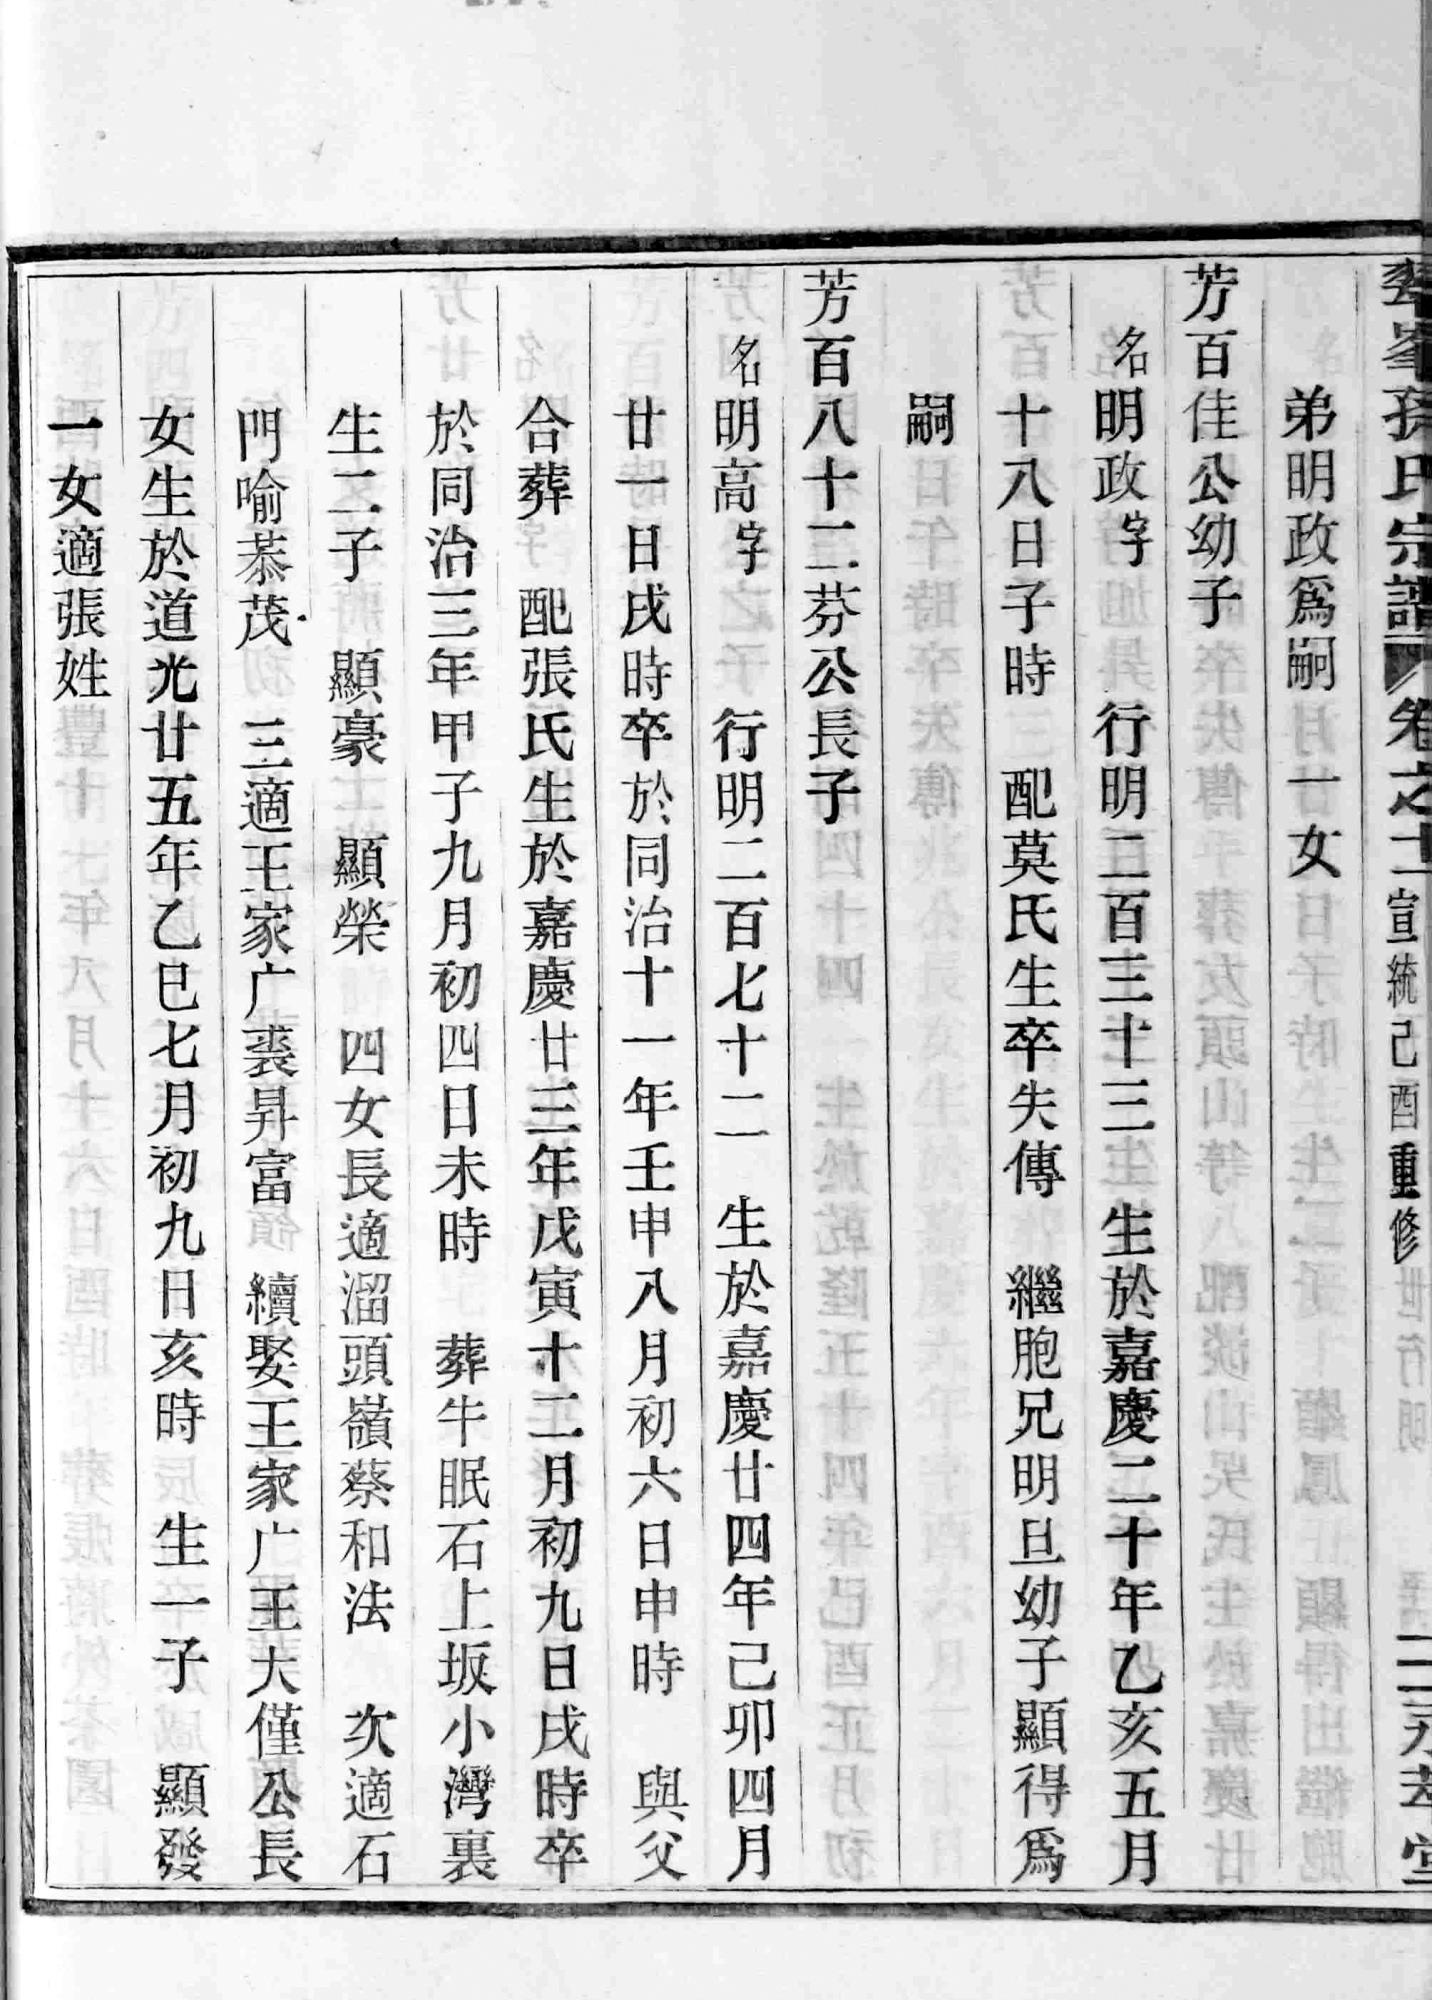 峯孫氏宗譜 卷之十二 宣統己酉重修
弟明政爲嗣 一女
芳百佳公幼子
名明政字 行明二百三十三 生於嘉慶二十年乙亥五月
十八日子時 配莫氏生卒失傳 繼胞兄明旦幼子顯得爲
嗣
芳百八十二芬公長子
名明高字 行明二百七十二 生於嘉慶廿四年己卯四月
廿一日戌時卒於同治十一年壬申八月初六日申時 與父
合葬 配張氏生於嘉慶廿三年戊寅十二月初九日戌時卒
於同治三年甲子九月初四日未時 葬牛眠石上坂小灣裏
生二子 顯豪 顯榮 四女長適溜頭嶺蔡和法 次適石
門喻恭茂 三適王家广裘昇富 續娶王家广王大僅公長
女生於道光廿五年乙巳七月初九日亥時 生一子 顯發
一女適張姓